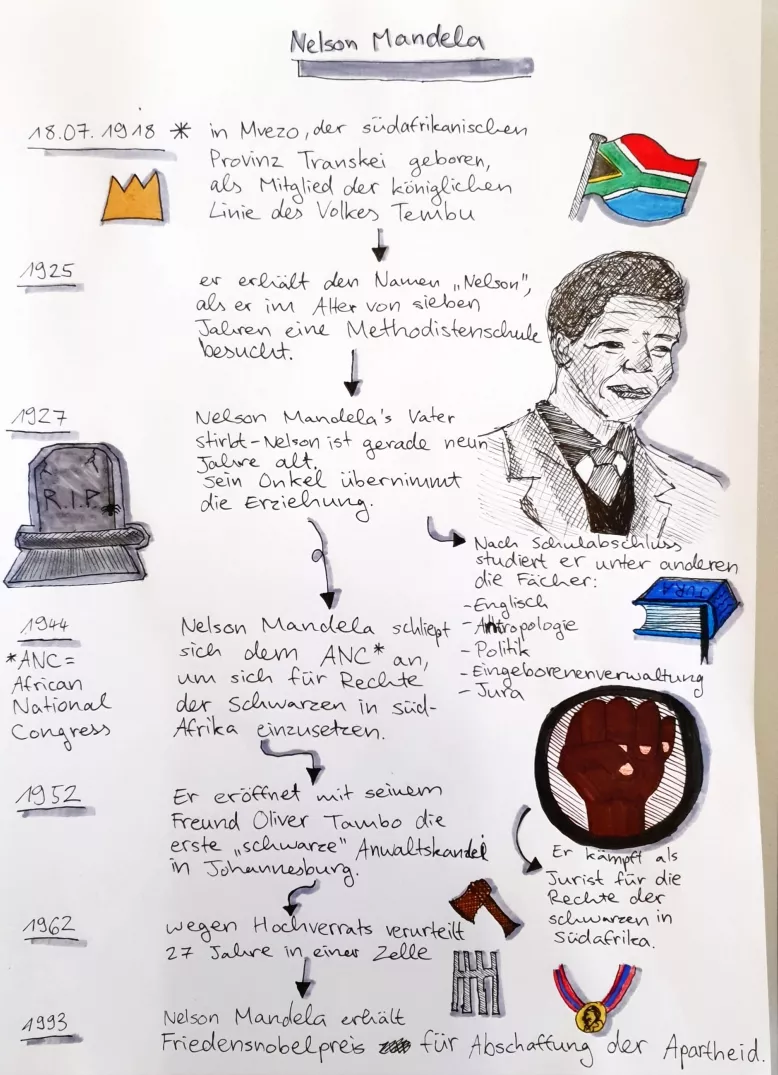 Nelson Mandela
18.07.1918 * in Mvezo, der südafrikanischen
Provinz Transkei geboren,
als Mitglied der königlichen
Linie des Volkes Tembu
1925
er erhält den Namen „Nelson",
als er im Alter von sieben
Jahren eine Methodistenschule
besucht.
1927
Nelson Mandela's Vater
stirbt - Nelson ist gerade neun
Jahre alt.
Sein Onkel übernimmt
die Erziehung.
R.I.P.
Nach Schulabschluss
studiert er unter anderen
die Fächer:
- Englisch
- Antropologie
- Politik
- Eingeborenenverwaltung
- Jura
JURA
1944
*ANC =
African
National
Congress
Nelson Mandela schließt
sich dem ANC* an,
um sich für Rechte
der Schwarzen in Süd-
Afrika einzusetzen.
1952
Er eröffnet mit seinem
Freund Oliver Tambo die
erste „schwarze" Anwaltskanzlei
in Johannesburg.
Er kämpft als
Jurist für die
Rechte der
schwarzen in
Südafrika.
1962
wegen Hochverrats verurteilt
27 Jahre in einer Zelle
1993
Nelson Mandela erhält
Friedensnobelpreis für Abschaffung der Apartheid.